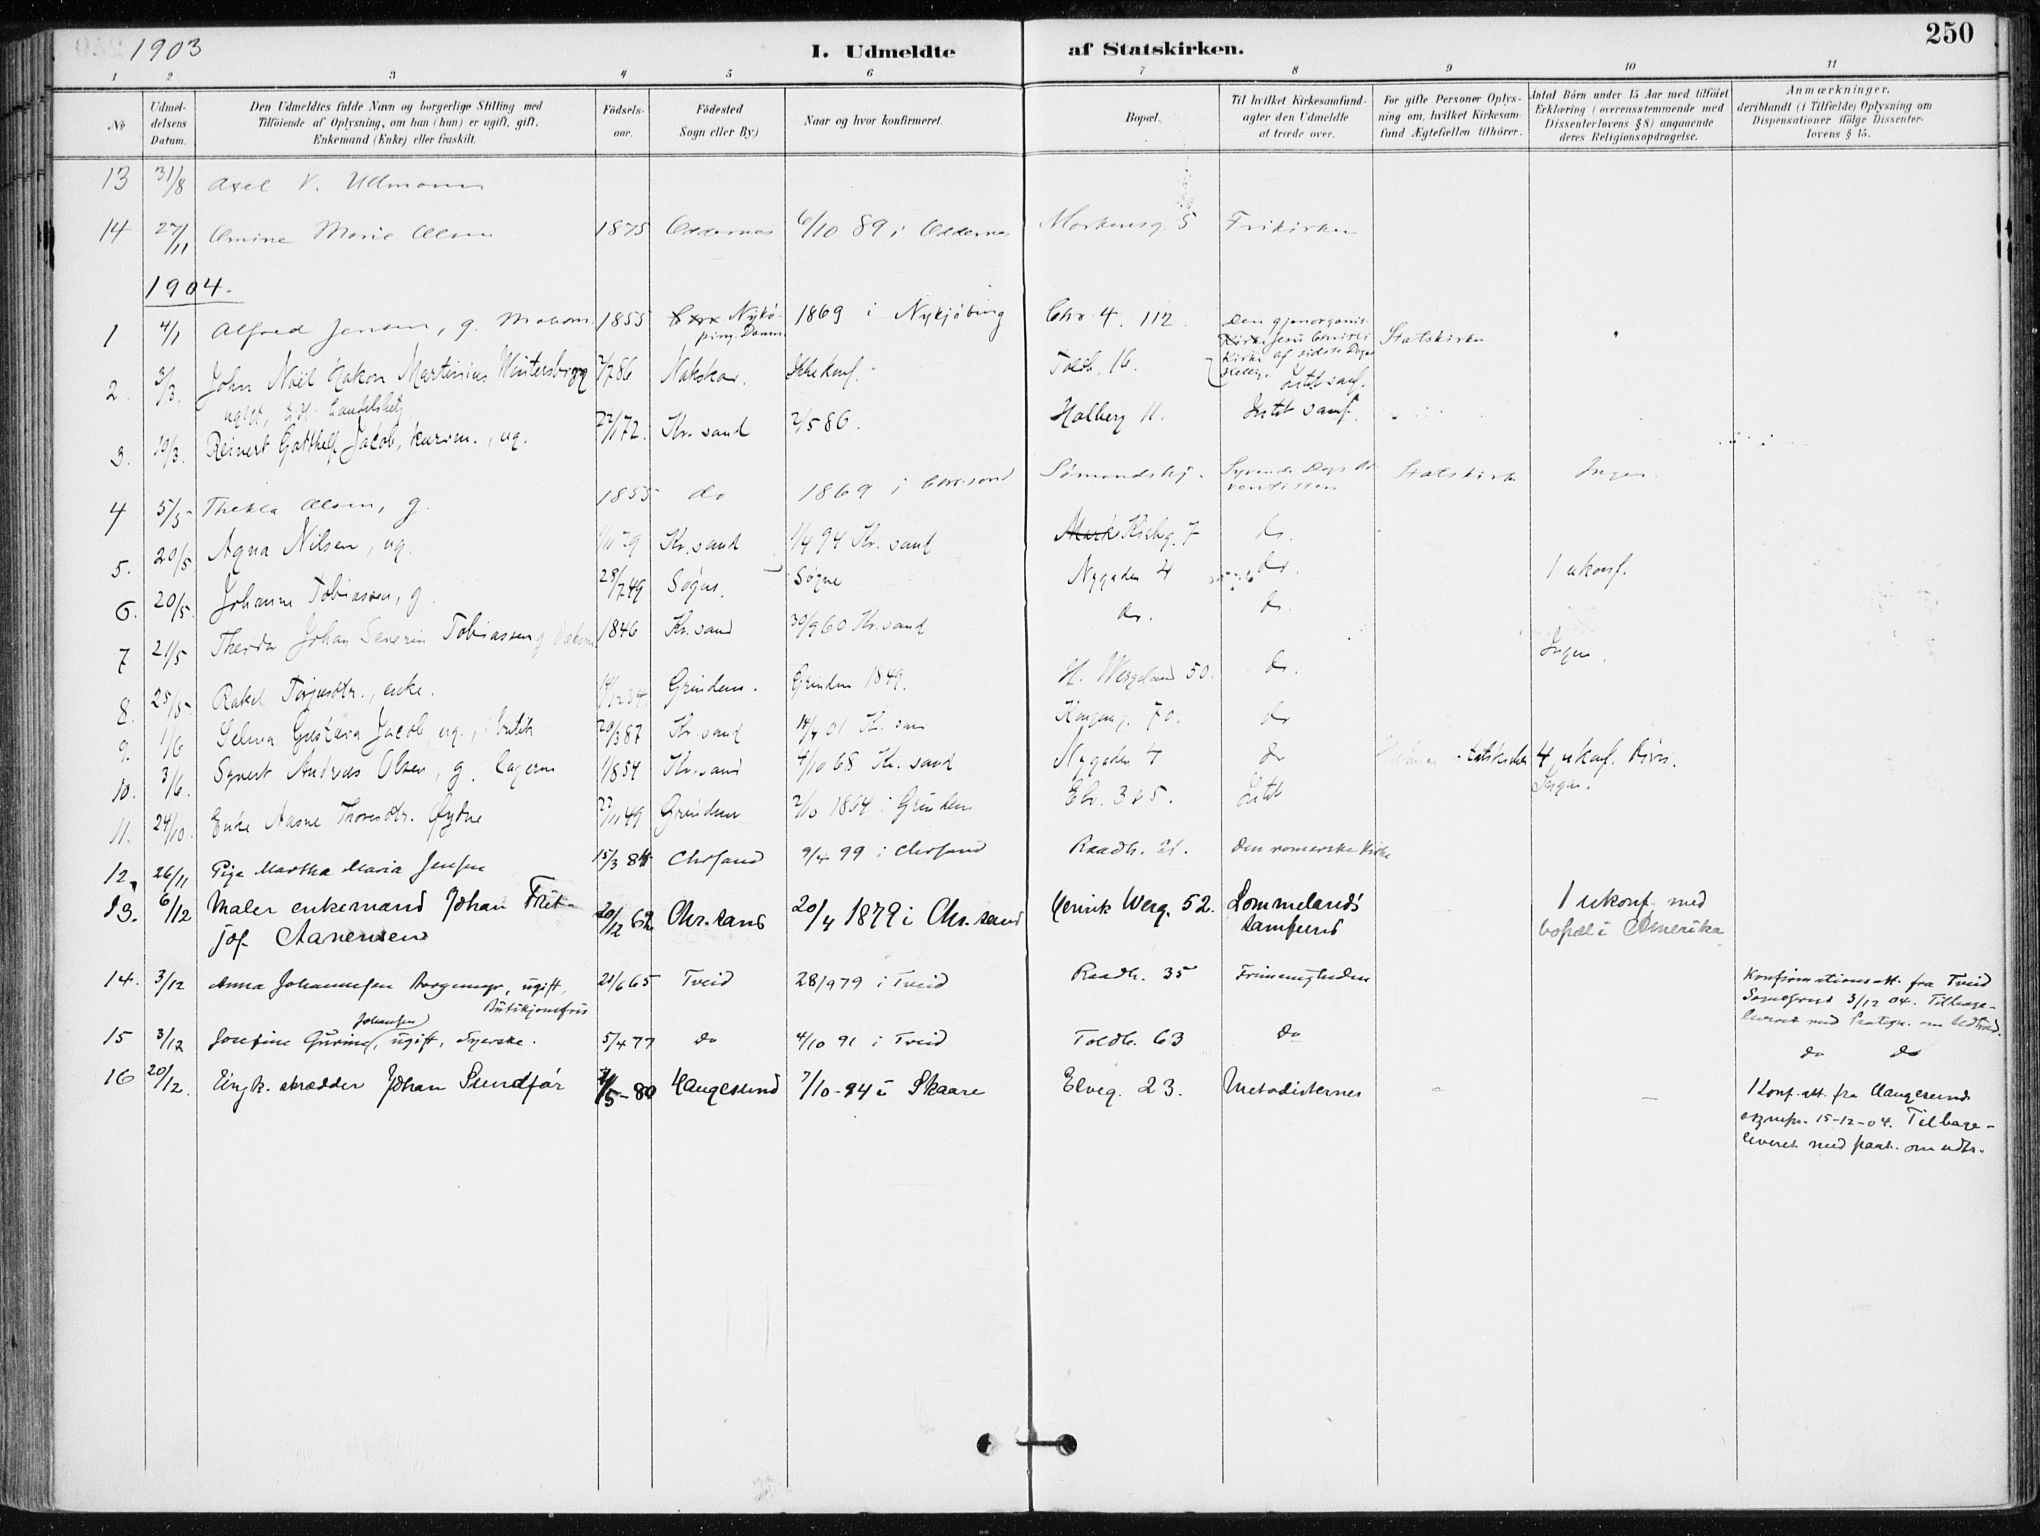 1903
I. Udmeldte af Statskirken.
250
1 2 3 4 5 6 7 8 9 10 11
No
Udmel-
delsens
Datum.
Den Udmeldtes fulde Navn og borgerlige Stilling med
Tilföiende af Oplysning, om han (hun) er ugift, gift,
Enkemand (Enke) eller fraskilt.
Födsels-
aar.
Födested
Sogn eller By)
Naar og hvor konfirmeret.
Bopæl.
Til hvilket Kirkesamfund-
agter den Udmeldte
at træde over.
For gifte Personer Oplys-
ning om, hvilket Kirkesam-
fund Ægtefællen tilhörer.
Antal Börn under 15 Aar med tilföiet
Erklæring (overensstemmende med
Dissenterlovens § 8) angaaende
deres Religionsopdragelse.
Anmærkninger,
deriblandt (i Tilfælde) Oplysning om
Dispensationer ifölge Dissenter-
lovens § 15.
13 31/8 Axel V. Ullmann
14 27/11 Amine Marie Olsen 1875 Oddernes 6/10 89 i Oddernes Markensg. 5 Frikirken
1904.
1 4/1 Alfred Jensen, g. 1855 Nykö-
ping. Danm. 1869 i Nykjøbing Chr. 4. 112. Den gjenorganis.
Jesu Christi
Kirke af sidste Dages
Hellig. Statskirken
2. 3/3. John Noël Hakon Martinius Wintersborg
ugift, handelsbetj. 86 Nakskov. Ikke konf. Toldb. 16. Intet samf.
3. 10/3. Reinert Gotthelf Jacob, ug. 22/1 72. Kr.sand 2/5 86. Holberg 11. Intet samf.
4 5/5 Thekla Olsen, g. 1855 do 1869 i Chr.sand Syvende Dags Ad-
ventisten Statskirke Ingen.
5. 20/5 Agna Nilsen, ug. Kr.sand 94 Kr.sand 7 do.
6. 20/5. Johanne Tobiassen, g. 28/7 49 Søgne. Søgne Nygaden 4 do. 1 ukonf.
7 21/5 Johan Severin Tobiassen g. 1846 Kr.sand 30/9 60 Kr.sand do. do.
8. 25/5 Rakel Terjesdtr., enke. Grindem. Grindem 1849. H. Wergeland 50. do. Ingen.
9. 1/6 Selma Gustava Jacob, ug., i butik 20/3 87 Kr.sand 14/4 01 Kr.san Kongeng. 70. do
10. 3/6. Syvert Andreas Olsen, g. 1/8 54 Kr.sand 4/10 68 Kr.sand Nygaden 4 do Statskirken 4 ukonf. børn.
11. 24/10. Enke Aasne Thoresdtr. Øydne 22/11 49 Grindem 2/10 1864 i Grindem Elv. 3 & 5. Intet Ingen.
12. 26/11 Pige Martha Maria Jensen 15/3 84 Chrsand 9/4 99 i Chrsand Raadh. 21. Den romerske kirke
13. 6/12 Maler enkemand Johan Frit-
jof Aanensen 20/12 62 Chr.sand 20/4 1879 i Chr.sand Henrik Werg. 52. Lommelands
samfund 1 ukonf. med
bopæl i Amerika
14. 3/12 Anna Johannesen Borgemyr, ugift,
Butikjomfru 21/6 65 Tveid 28/9 79 i Tveid Raadh. 35 Frimenigheden Konfirmationsatt. fra Tveid
Sognepræst 3/12 04. Tilbage-
leveret med Pategn. om Udtræd.
15 3/12 Josefine Gurine Johansen, ugift, Syerske. 5/4 77 do 4/10 91 i Tveid Toldb. 63 Do do do
16 20/12. Ungk. skrædder Johan Sundfør /5-80 Haugesund 7/10-94 i Skaare Elveg. 23. Metodisternes - - 1 konf. att. fra Haugesund
sognepr. 15-12-04. Tilbage-
leveret med paat. om udtr.